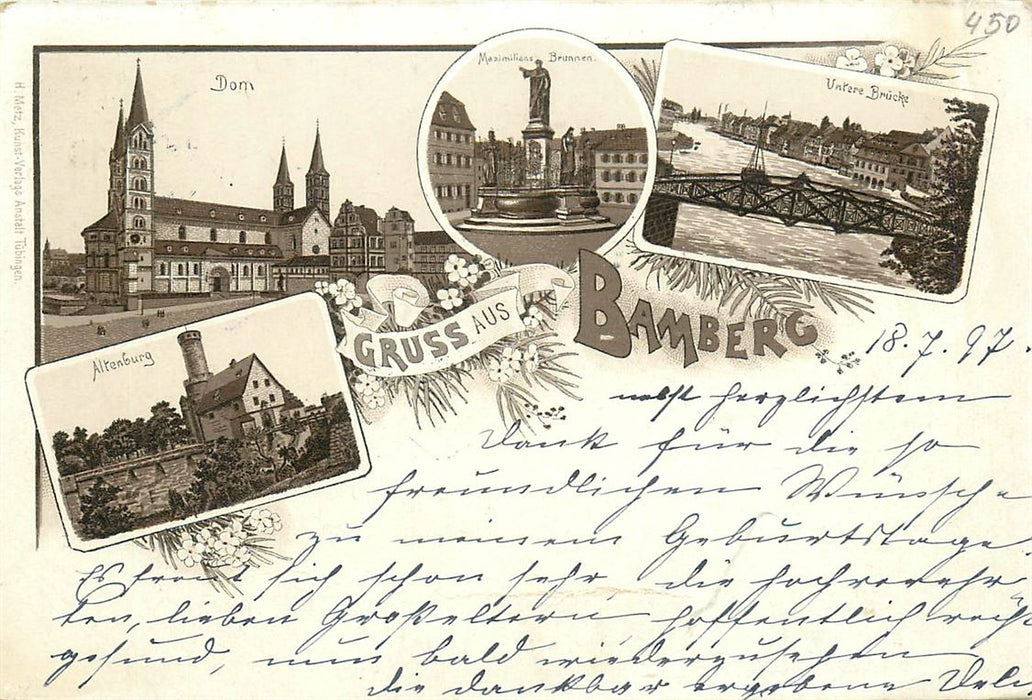 450
Dom
Maximilians Brunnen.
Untere Brücke
H. Metz, Kunst-Verlags Anstalt Tübingen.
Altenburg
GRUSS AUS
BAMBERG
18. 7. 97.
nebst herzlichstem
Dank für die so
freundlichen Wünsche
zu meinem Geburtstage.
Es freut sich schon sehr, die hochverehr
ten, lieben Großeltern hoffentlich recht
gesund, nun bald wiederzusehen
die dankbar ergebene